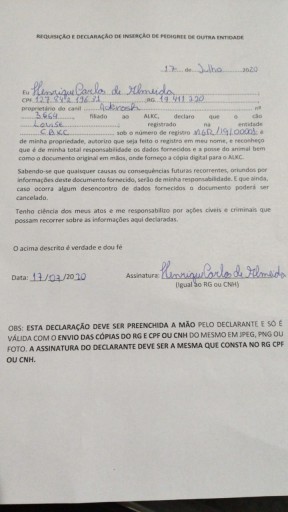 REQUISIÇÃO E DECLARAÇÃO DE INSERÇÃO DE PEDIGREE DE OUTRA ENTIDADE
17 de Julho 2020
Eu Henrique Carlos de Almeida
CPF RG
proprietário do canil nº
3864 filiado ao ALKC, declaro que o cão
Louise registrado na entidade
CBKC sob o número de registro
de minha propriedade, autorizo que seja feito o registro em meu nome, e reconheço
que é de minha total responsabilidade os dados fornecidos e a posse do animal bem
como o documento original em mãos, onde forneço a cópia digital para o ALKC.
Sabendo-se que quaisquer causas ou consequências futuras recorrentes, oriundos por
informações deste documento fornecido, serão de minha responsabilidade. E que ainda,
caso ocorra algum desencontro de dados fornecidos o documento poderá ser
cancelado.
Tenho ciência dos meus atos e me responsabilizo por ações cíveis e criminais que
possam recorrer sobre as informações aqui declaradas.
O acima descrito é verdade e dou fé
Data: 17/07/2020 Assinatura: Henrique Carlos de Almeida
(Igual ao RG ou CNH)
OBS: ESTA DECLARAÇÃO DEVE SER PREENCHIDA A MÃO PELO DECLARANTE E SÓ É
VÁLIDA COM O ENVIO DAS CÓPIAS DO RG E CPF OU CNH DO MESMO EM JPEG, PNG OU
FOTO. A ASSINATURA DO DECLARANTE DEVE SER A MESMA QUE CONSTA NO RG CPF
OU CNH.